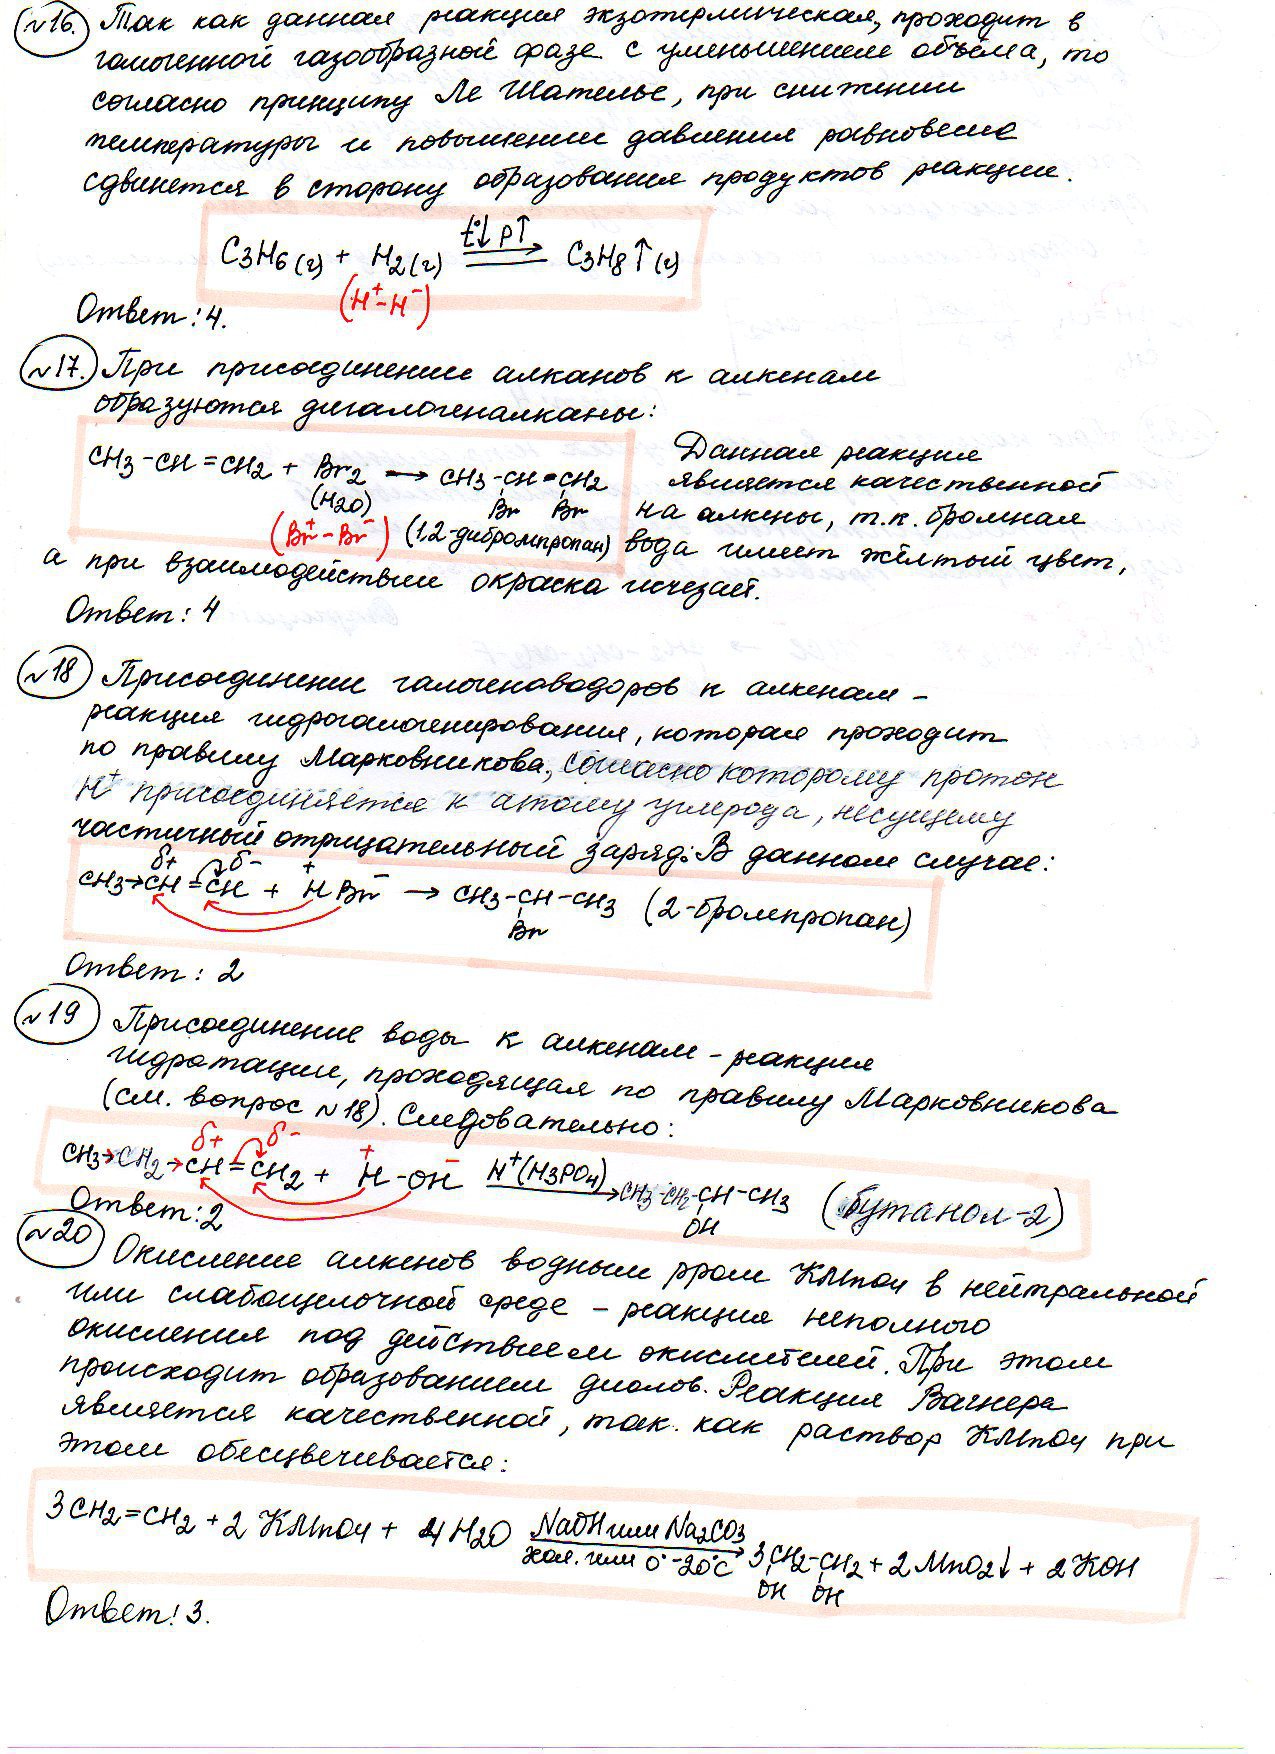 №16. Так как данная реакция экзотермическая, проходит в
гомогенной газообразной фазе с уменьшением объёма, то
согласно принципу Ле Шателье, при снижении
температуры и повышении давления равновесие
сдвинется в сторону образования продуктов реакции.
t°↓ p↑
C3H6(г) + H2(г) ⇌ C3H8↑(г)
(H⁺–H⁻)
Ответ: 4.
№17. При присоединении алканов к алкенам
образуются дигалогеналканы:
CH3-CH=CH2 + Br2 → CH3-CH-CH2 Данная реакция
является качественной
(H2O) Br Br на алкены, т.к. бромная
(Br⁺–Br⁻) (1,2-дибромпропан) вода имеет жёлтый цвет,
а при взаимодействии окраска исчезает.
Ответ: 4
№18 Присоединение галогеноводоров к алкенам –
реакция гидрогалогенирования, которая проходит
по правилу Марковникова, согласно которому протон
H⁺ присоединяется к атому углерода, несущему
частичный отрицательный заряд. В данном случае:
δ+ δ- + -
CH3→CH=CH + HBr → CH3-CH-CH3 (2-бромпропан)
Br
Ответ: 2
№19 Присоединение воды к алкенам – реакция
гидратации, проходящая по правилу Марковникова
(см. вопрос №18). Следовательно:
δ+ δ- + -
CH3→CH2→CH=CH2 + H-OH H⁺(H3PO4) → CH3-CH2-CH-CH3 (бутанол-2)
OH
Ответ: 2
№20 Окисление алкенов водным рром KMnO4 в нейтральной
или слабощелочной среде – реакция неполного
окисления под действием окислителей. При этом
происходит образованием диолов. Реакция Вагнера
является качественной, так как раствор KMnO4 при
этом обесцвечивается:
3CH2=CH2 + 2KMnO4 + 4H2O NaOH или Na2CO3
хол. или 0°-20°C → 3CH2-CH2 + 2MnO2↓ + 2KOH
OH OH
Ответ: 3.